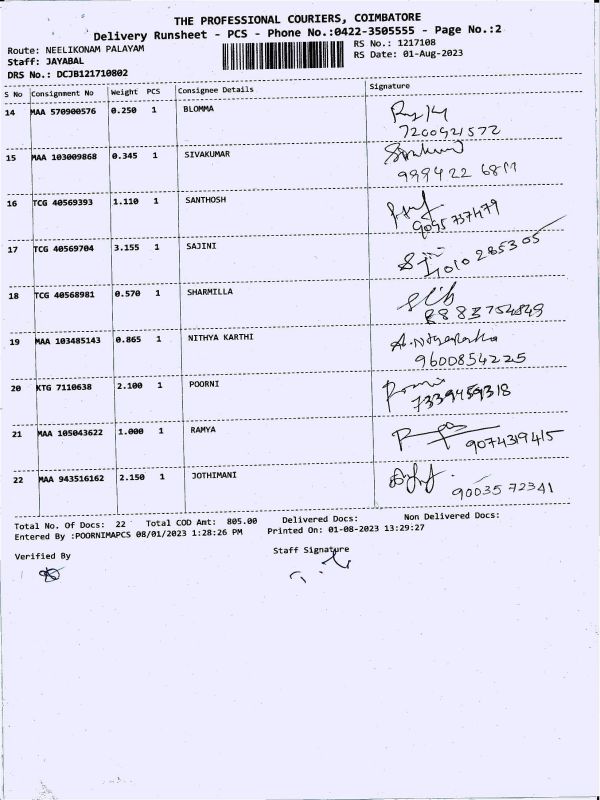 THE PROFESSIONAL COURIERS, COIMBATORE
Delivery Runsheet - PCS - Phone No.:0422-3505555 - Page No.:2
Route: NEELIKONAM PALAYAM
RS No.: 1217108
Staff: JAYABAL
RS Date: 01-Aug-2023
DRS No.: DCJB121710802
S No Consignment No Weight PCS Consignee Details Signature
14 MAA 570900576 0.250 1 BLOMMA
7200921572
15 MAA 103009868 0.345 1 SIVAKUMAR
99942268
16 TCG 40569393 1.110 1 SANTHOSH
9095737479
17 TCG 40569704 3.155 1 SAJINI
1010285305
18 TCG 40568981 0.570 1 SHARMILLA
8883754849
19 MAA 103485143 0.865 1 NITHYA KARTHI
9600854225
20 KTG 7110638 2.100 1 POORNI
7339459318
21 MAA 105043622 1.000 1 RAMYA
9074319415
22 MAA 943516162 2.150 1 JOTHIMANI
9003572341
Total No. Of Docs: 22 Total COD Amt: 805.00 Delivered Docs: Non Delivered Docs:
Entered By :POORNIMAPCS 08/01/2023 1:28:26 PM Printed On: 01-08-2023 13:29:27
Verified By
Staff Signature